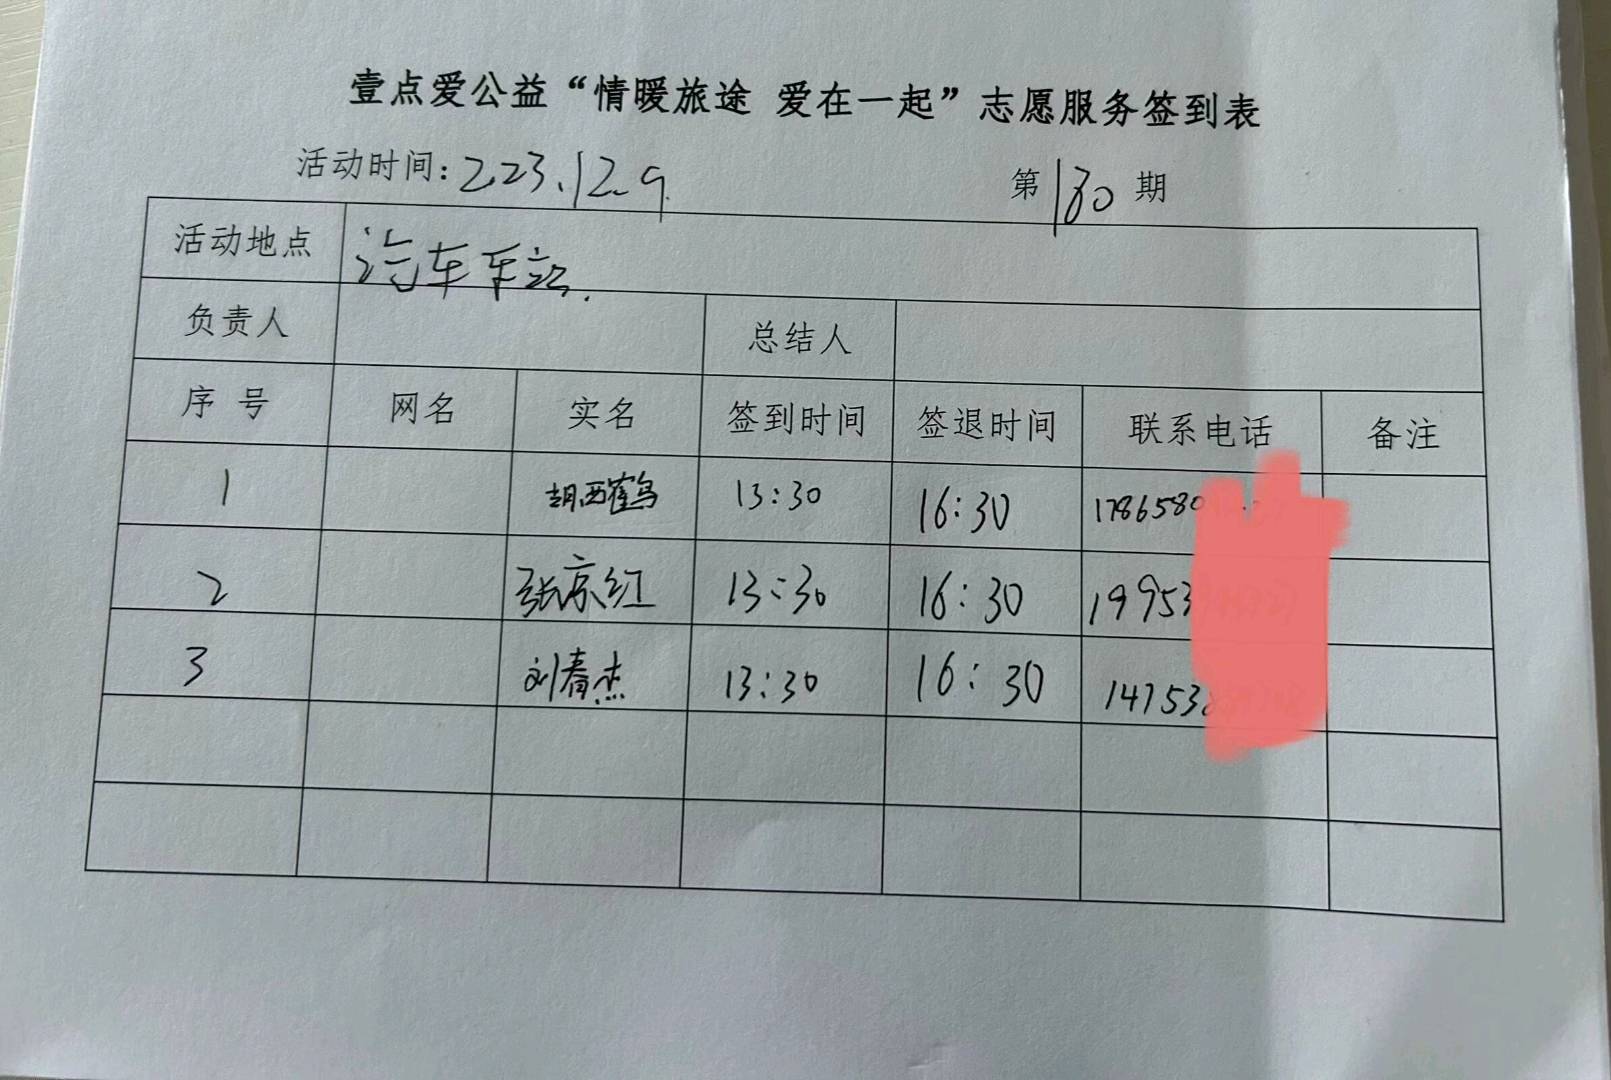 壹点爱公益“情暖旅途 爱在一起”志愿服务签到表
活动时间：2023.12.9.
第180期
活动地点 汽车车站.
负责人 总结人
序号 网名 实名 签到时间 签退时间 联系电话 备注
1 胡西鹤 13:30 16:30 1786580
2 张京红 13:30 16:30 19953
3 刘春杰 13:30 16:30 14753